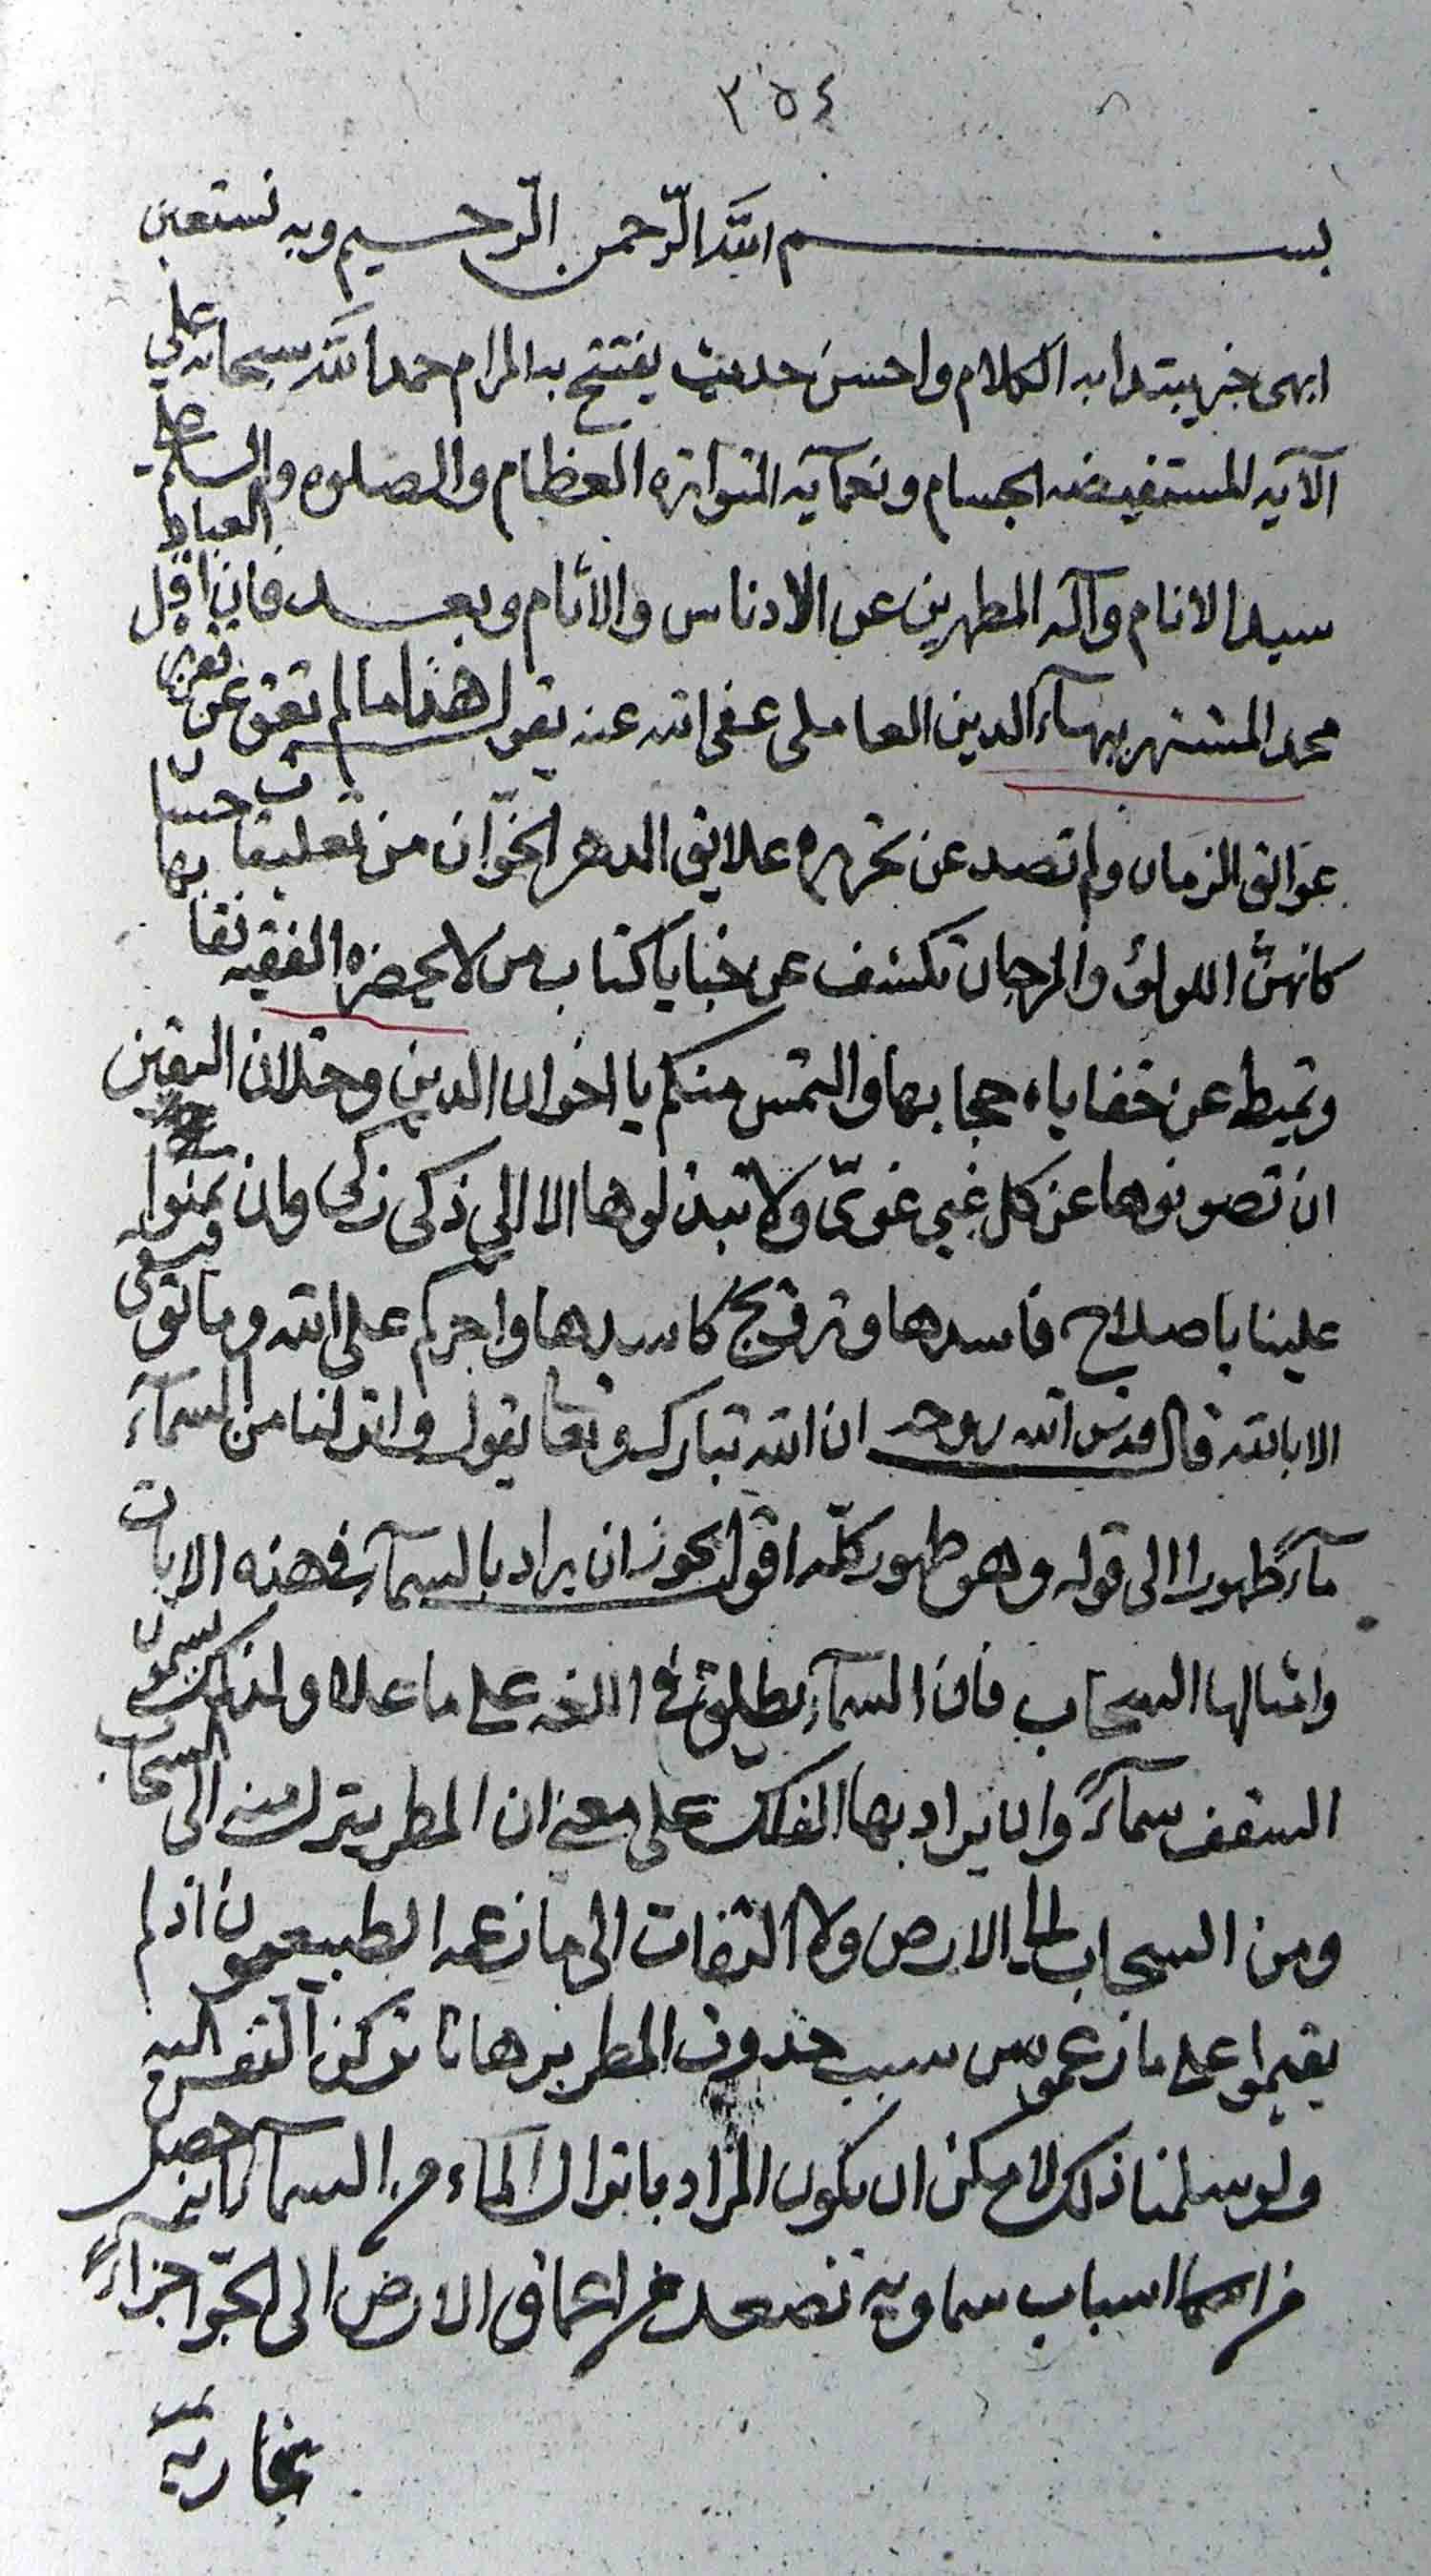 ٣٥٤
بسم الله الرحمن الرحيم وبه نستعين
ابهى خبر يبتدا به الكلام واحسن حديث يفتتح به المرام حمد الله سبحانه على
آلآيه المستفيضه الجسام ونعمآيه المتواتره العظام والصلوه والسلم على
سيد الانام وآله المطهرين عن الادناس والآثام وبعد فان اقل العباد
محمد المشتهر ببهاء الدين العاملى عفى الله عنه يقول هذا ما لم تعق عن تقريره
عوائق الزمان ولم تصد عن تحريره علايق الدهر الخوّان من تعليقات حسان
كانهن اللولؤ والمرجان تكشف عن خبايا كتاب من لا يحضره الفقيه نقابها
وتميط عن خفاياه حجابها والتمس منكم يا اخوان الدين وخلان اليقين
ان تصونوها عن كل غبي غويّ ولا تبذلوها الا الى ذكى زكى وان تمنّوا
علينا باصلاح فاسدها وترويج كاسدها واجركم على الله وما توفيقى
الا بالله قال قدس الله روحه ان الله تبارك وتعا يقول وانزلنا من السمآء
مآءً طهورا الى قوله وهو طهور كلّه اقول يجوز ان يراد بالسمآء فى هذه الايات
وامثالها السحاب فان السمآء يطلق فى اللغه على ما علا ولذلك يسمون
السقف سمآءً وان يراد بها الفلك على معنى ان المطر ينزل منه الى السحاب
ومن السحاب الى الارض ولا التفات الى ما زعمه الطبيعيون اذ لم
يقيموا على ما زعموه من سبب حدوث المطر برهانا تركن النفس اليه
ولو سلمنا ذلك لامكن ان يكون المراد بانزال الماء من السمآء انه حصل
من اسباب سماويه تصعد من اعماق الارض الى الجوّ اجزآءً
بخاريّة